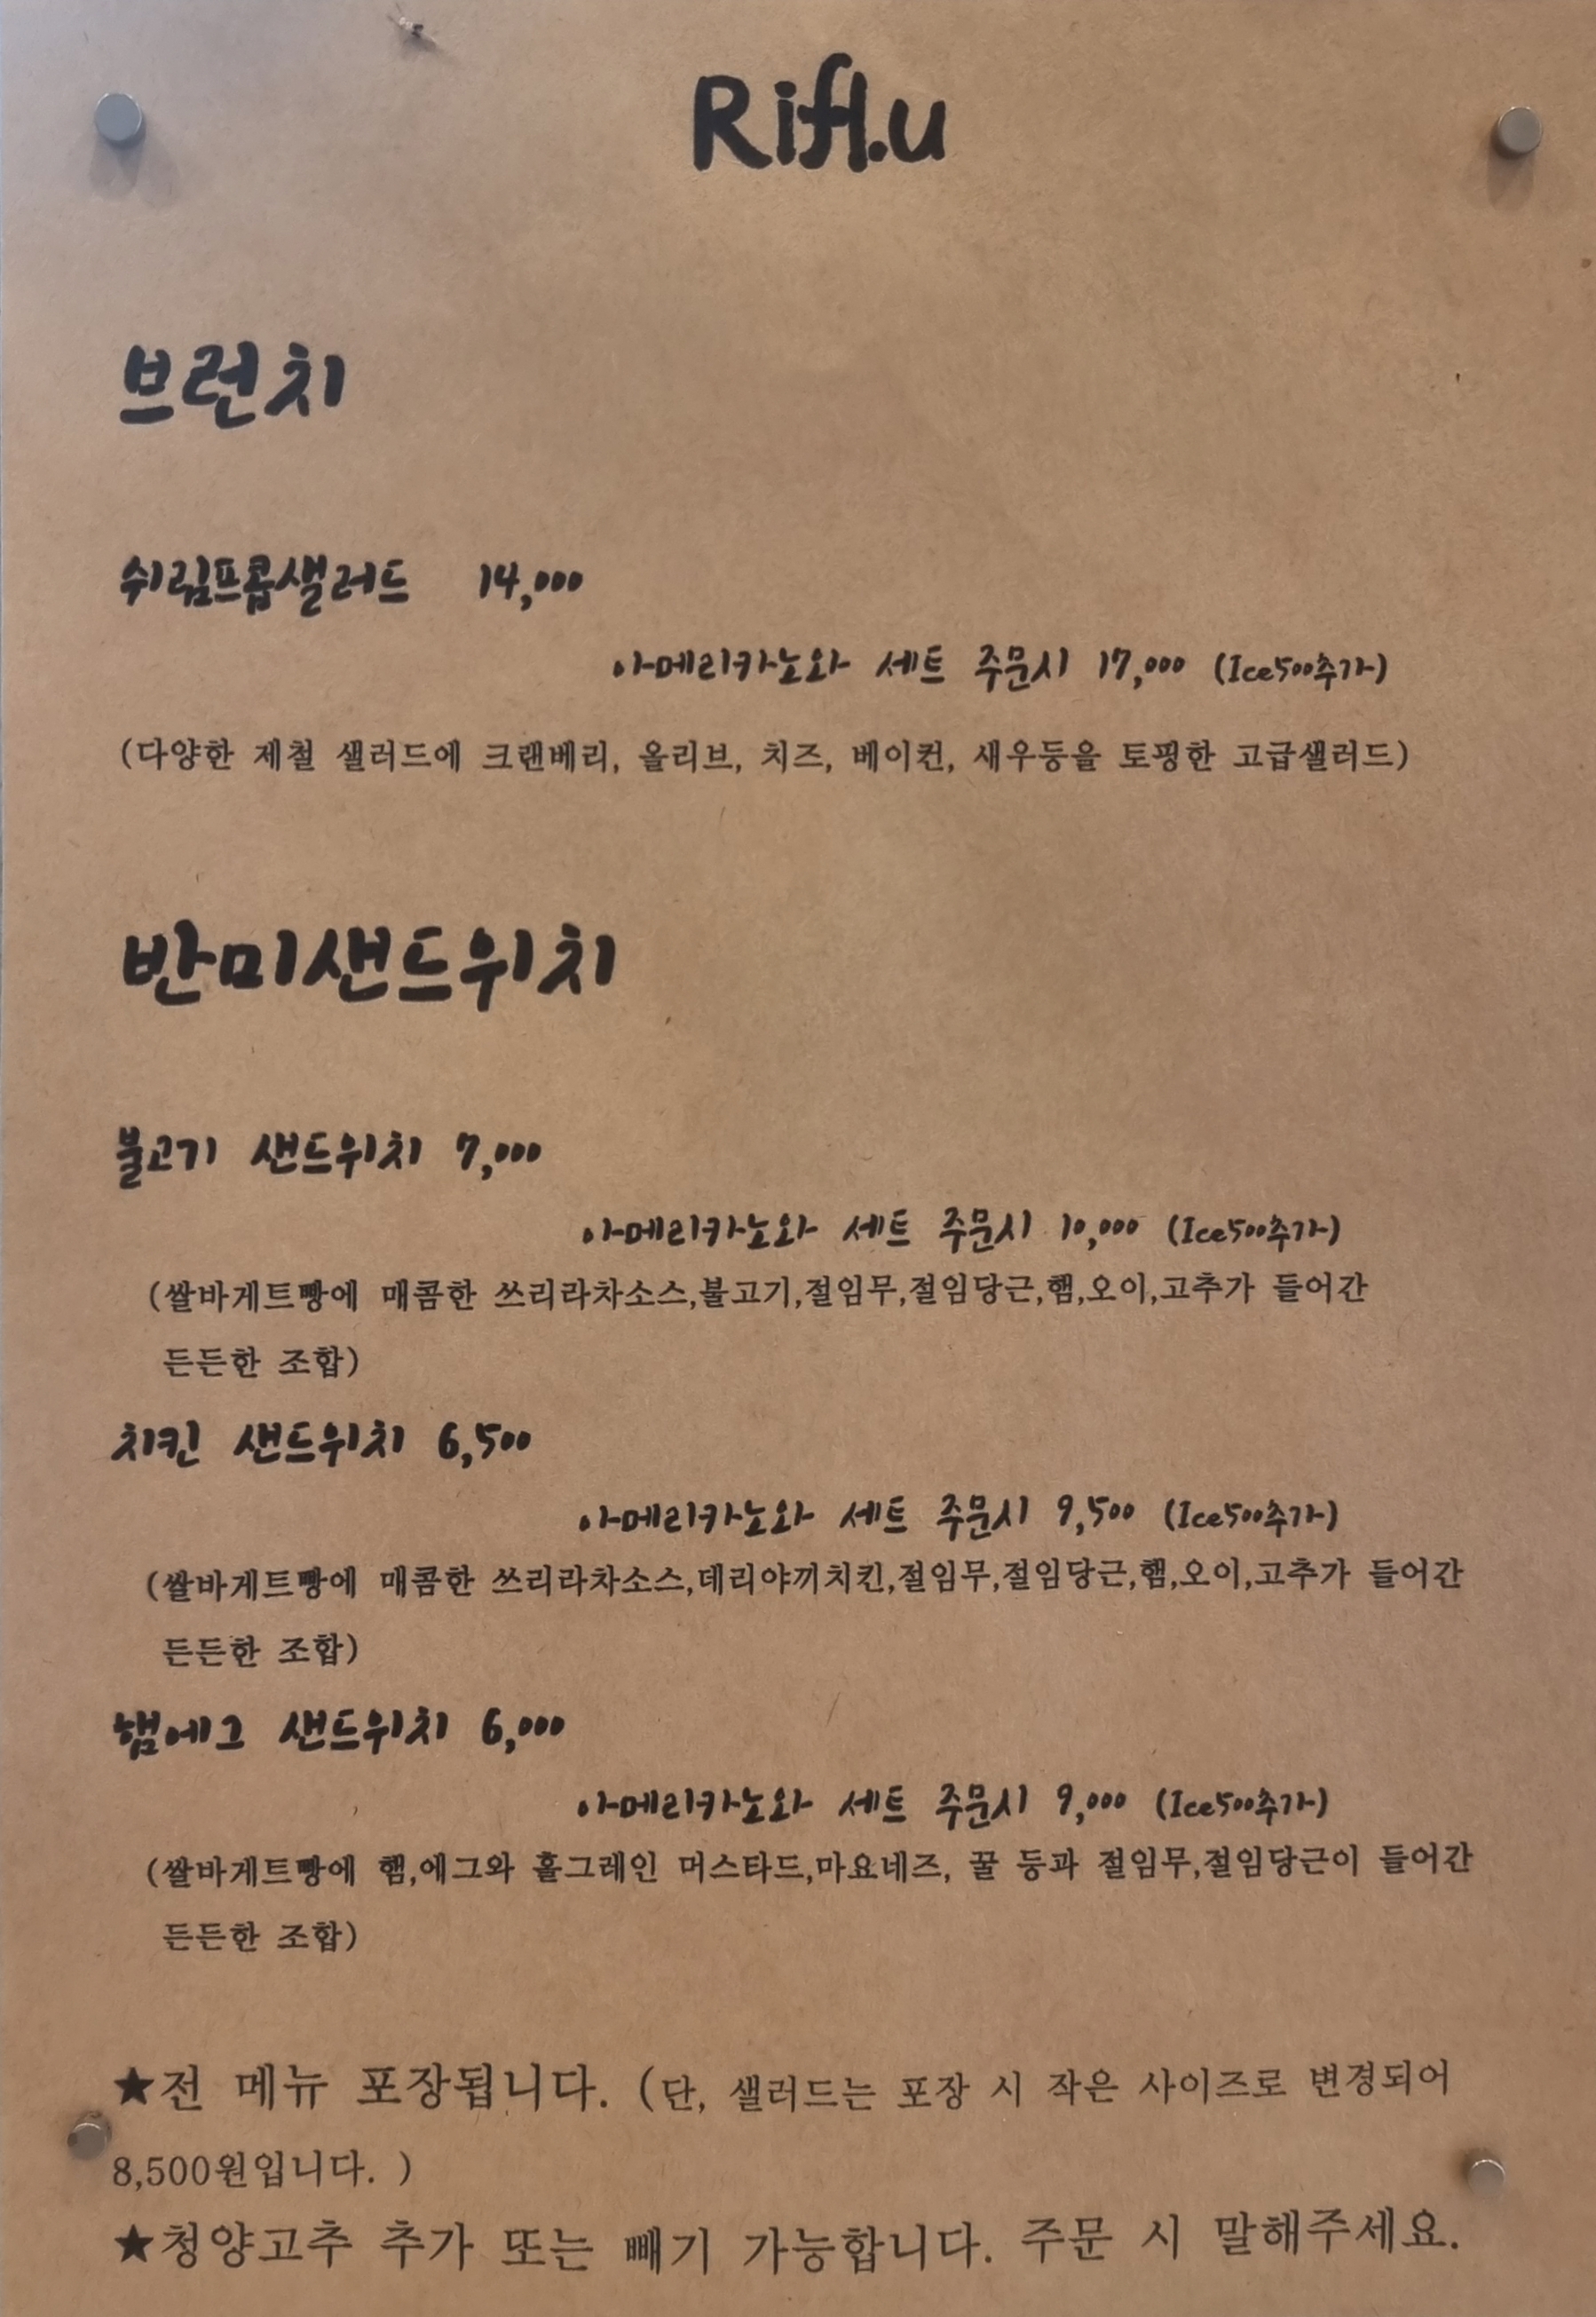 Rifl.u
브런치
쉬림프콥샐러드 14,000
아메리카노와 세트 주문시 17,000 (Ice500추가)
(다양한 제철 샐러드에 크랜베리, 올리브, 치즈, 베이컨, 새우등을 토핑한 고급샐러드)
반미샌드위치
불고기 샌드위치 7,000
아메리카노와 세트 주문시 10,000 (Ice500추가)
(쌀바게트빵에 매콤한 쓰리라차소스,불고기,절임무,절임당근,햄,오이,고추가 들어간
든든한 조합)
치킨 샌드위치 6,500
아메리카노와 세트 주문시 9,500 (Ice500추가)
(쌀바게트빵에 매콤한 쓰리라차소스,데리야끼치킨,절임무,절임당근,햄,오이,고추가 들어간
든든한 조합)
햄에그 샌드위치 6,000
아메리카노와 세트 주문시 9,000 (Ice500추가)
(쌀바게트빵에 햄,에그와 홀그레인 머스타드,마요네즈, 꿀 등과 절임무,절임당근이 들어간
든든한 조합)
★전 메뉴 포장됩니다. (단, 샐러드는 포장 시 작은 사이즈로 변경되어
8,500원입니다. )
★청양고추 추가 또는 빼기 가능합니다. 주문 시 말해주세요.